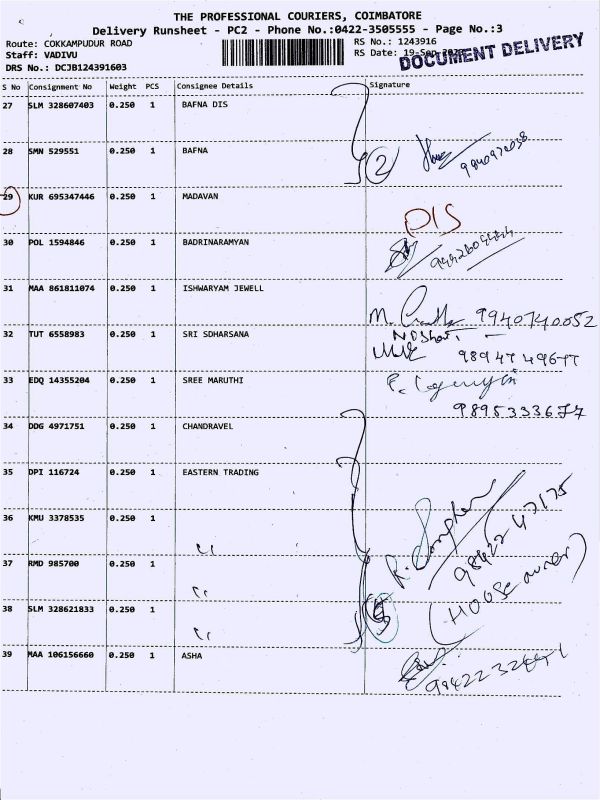 THE PROFESSIONAL COURIERS, COIMBATORE
Delivery Runsheet - PC2 - Phone No.:0422-3505555 - Page No.:3
Route: COKKAMPUDUR ROAD
RS No.: 1243916
Staff: VADIVU
RS Date: 19-Sep
DOCUMENT DELIVERY
DRS No.: DCJB124391603
S No Consignment No Weight PCS Consignee Details Signature
27 SLM 328607403 0.250 1 BAFNA DIS
28 SMN 529551 0.250 1 BAFNA
2
29 KUR 695347446 0.250 1 MADAVAN
DIS
30 POL 1594846 0.250 1 BADRINARAMYAN
31 MAA 861811074 0.250 1 ISHWARYAM JEWELL
9940740052
32 TUT 6558983 0.250 1 SRI SDHARSANA
33 EDQ 14355204 0.250 1 SREE MARUTHI
9895333677
34 DDG 4971751 0.250 1 CHANDRAVEL
35 DPI 116724 0.250 1 EASTERN TRADING
36 KMU 3378535 0.250 1
"
98422 47175
37 RMD 985700 0.250 1
"
(HOOSE owner)
38 SLM 328621833 0.250 1
"
5
39 MAA 106156660 0.250 1 ASHA